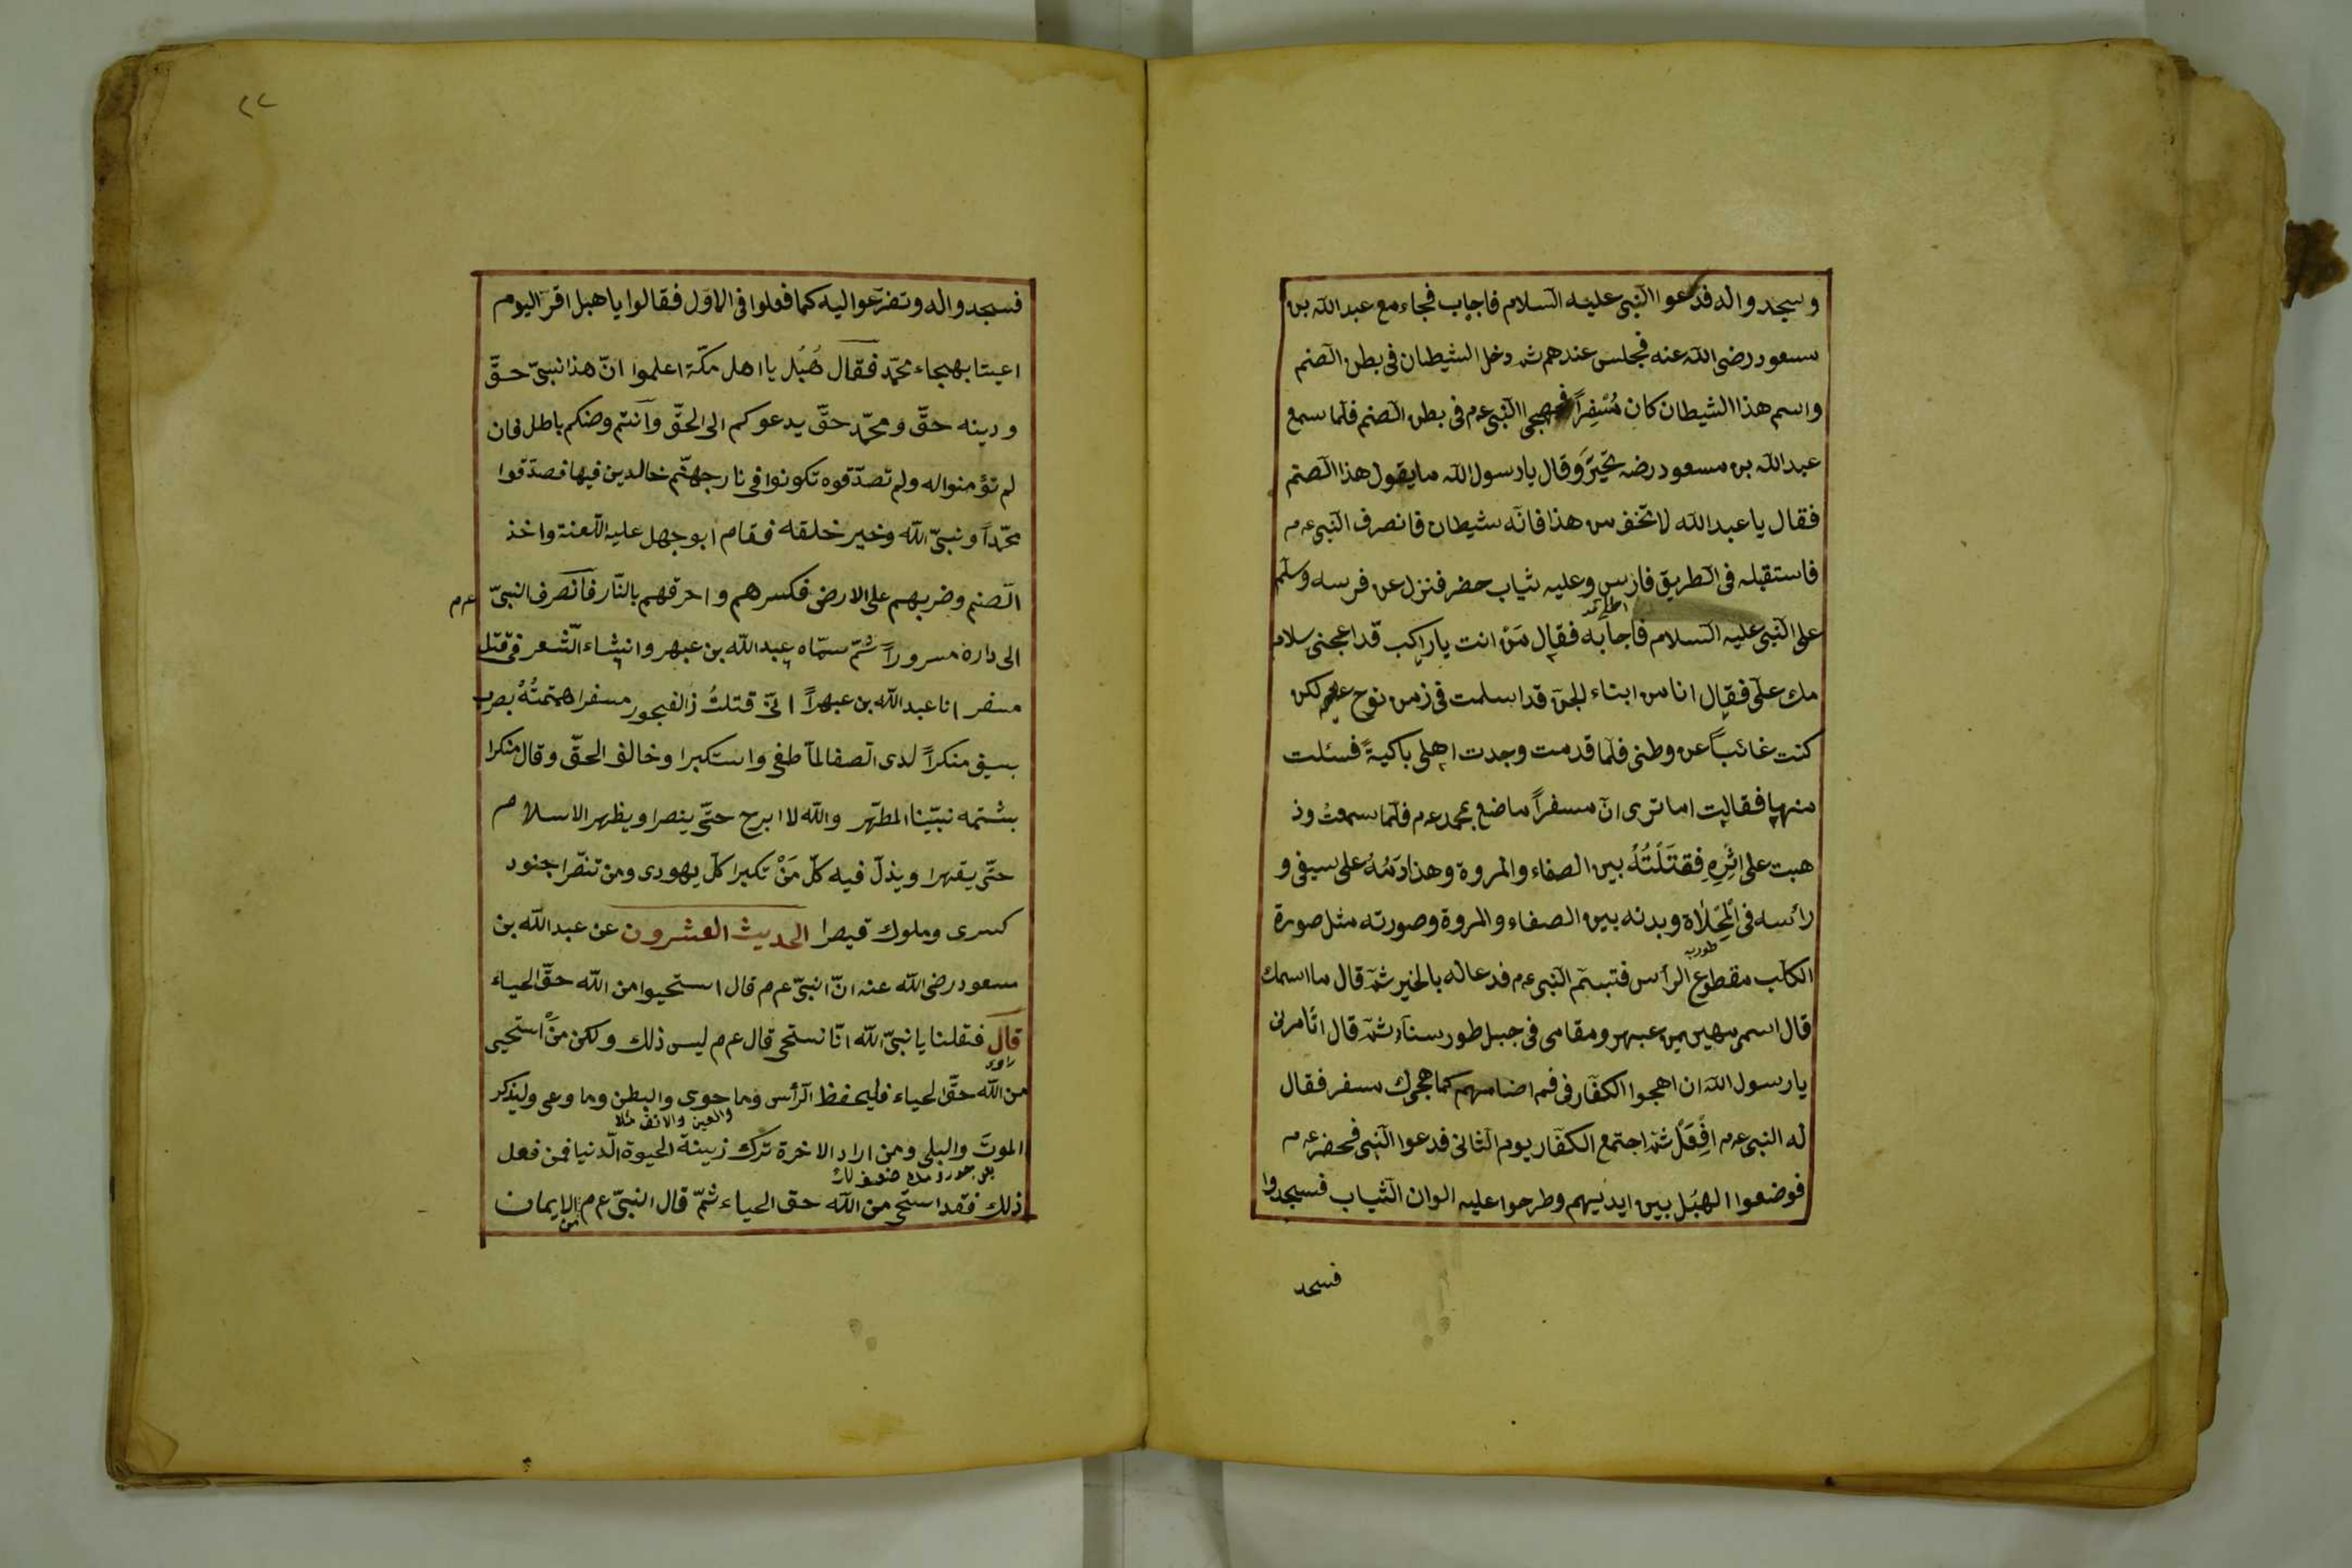 وسجدوا له فدعوا النبى عليه السلام فاجاب فجاء مع عبد الله بن
مسعود رضى الله عنه فجلس عندهم ثم دخل الشيطان فى بطن الصنم
واسم هذا الشيطان كان مُسْفِراً فهجى النبى عم فى بطن الصنم فلما سمع
عبد الله بن مسعود رضه تحيّر وقال يا رسول الله ما يقول هذا الصنم
فقال يا عبد الله لا تخف من هذا فانّه شيطان فانصرف النبى عم
فاستقبله فى الطريق فارس وعليه ثياب خضر فنزل عن فرسه وسلّم
على النبى عليه السلام فاجابه فقال مَنْ انت يا راكب قد اعجبنى سلا
مك علىّ فقال انا من ابناء الجن قد اسلمت فى زمن نوح عم لكن
كنت غائباً عن وطنى فلما قدمت وجدت اهلى باكيةً فسئلت
منها فقالت اما ترى انّ مسفراً ما ضع بمحمد عم فلما سمعتُ وذ
هبت على اثرِهِ فقتَلْتُهُ بين الصفاء والمروة وهذا دَمُهُ على سيفى و
رأسه فى المِخْلاة وبدنه بين الصفاء والمروة وصورته مثل صورة
الكلب مقطوع الرأس فتبسّم النبى عم فدعا له بالخير ثم قال ما اسمك
قال اسمى مهين بن عبهر ومقامى فى جبل طور سناء ثم قال اتأمرنى
يا رسول الله ان اهجوا الكفّار فى فم اصنامهم كما هجرك مسفر فقال
له النبى عم افْعَلْ ثمّ اجتمع الكفّار يوم الثانى فدعوا النبى فحضر عم
فوضعوا الهبُل بين ايديهم وطرحوا عليه الوان الثياب فسجدوا
فسجد
٢٢
فسجدوا له وتضرّعوا اليه كما فعلوا فى الاوّل فقالوا يا هبل اقر اليوم
اعيننا بهجاء محمّد فقال هُبُل يا اهل مكّة اعلموا انّ هذا نبىّ حقّ
ودينه حقّ ومحمّد حقّ يدعوكم الى الحقّ وانتم وصنمكم باطل فان
لم تؤمنوا له ولم تصدّقوه تكونوا فى نار جهنّم خالدين فيها فصدّقوا
محمّداً ونبىّ الله وخير خلقه فقام ابو جهل عليه اللّعنة واخذ
الصنم وضربهم على الارض فكسرهم واحرقهم بالنّار فانصرف النبىّ عم
الى داره مسروراً ثمّ سمّاه عبد الله بن عبهر وانشاء الشعر فى قتل
مسفر انا عبد الله بن عبهراً انّى قتلتُ ذالفجور مسفرا هتمتُهُ بضرب
بسيف منكراً لدى الصفا لمّا طغى واستكبرا وخالف الحقّ وقال منكرا
بشتمه نبيّنا المطهّر والله لا ابرح حتّى ينصرا ويظهر الاسلام
حتّى يقهرا ويذلّ فيه كلّ مَنْ تكبرا كلّ يهودى ومن تنصّرا جنود
كسرى وملوك قيصرا الحديث العشرون عن عبد الله بن
مسعود رضى الله عنه انّ النبىّ عم قال استحيوا من الله حقّ الحياء
قال فقلنا يا نبىّ الله انّا نستحى قال عم ليس ذلك ولكن مَنْ استحيى
راوى
من الله حقّ الحياء فليحفظ الرأس وما حوى والبطن وما وعى وليذكر
والعين والانف مثلا
الموت والبلى ومن اراد الاخرة ترك زينة الحيوة الدّنيا فمن فعل
ذلك فقد استحى من الله حق الحياء ثمّ قال النبىّ عم من الايمان